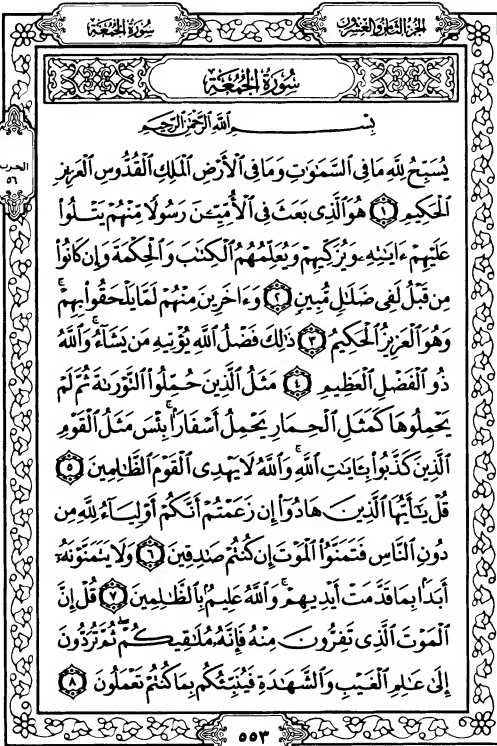 الجزء الثامن والعشرون
سُورَةُ الجُمُعَة
سُورَةُ الجُمُعَة
بِسْمِ اللَّهِ الرَّحْمَٰنِ الرَّحِيمِ
الحزب
٥٦
يُسَبِّحُ لِلَّهِ مَا فِى السَّمَٰوَٰتِ وَمَا فِى الْأَرْضِ الْمَلِكِ الْقُدُّوسِ الْعَزِيزِ
الْحَكِيمِ ١ هُوَ الَّذِى بَعَثَ فِى الْأُمِّيِّـۧنَ رَسُولًا مِّنْهُمْ يَتْلُوا۟
عَلَيْهِمْ ءَايَٰتِهِۦ وَيُزَكِّيهِمْ وَيُعَلِّمُهُمُ الْكِتَٰبَ وَالْحِكْمَةَ وَإِن كَانُوا۟
مِن قَبْلُ لَفِى ضَلَٰلٍ مُّبِينٍ ٢ وَءَاخَرِينَ مِنْهُمْ لَمَّا يَلْحَقُوا۟ بِهِمْ ۚ
وَهُوَ الْعَزِيزُ الْحَكِيمُ ٣ ذَٰلِكَ فَضْلُ اللَّهِ يُؤْتِيهِ مَن يَشَآءُ ۚ وَاللَّهُ
ذُو الْفَضْلِ الْعَظِيمِ ٤ مَثَلُ الَّذِينَ حُمِّلُوا۟ التَّوْرَىٰةَ ثُمَّ لَمْ
يَحْمِلُوهَا كَمَثَلِ الْحِمَارِ يَحْمِلُ أَسْفَارًۢا ۚ بِئْسَ مَثَلُ الْقَوْمِ
الَّذِينَ كَذَّبُوا۟ بِـَٔايَٰتِ اللَّهِ ۚ وَاللَّهُ لَا يَهْدِى الْقَوْمَ الظَّٰلِمِينَ ٥
قُلْ يَٰٓأَيُّهَا الَّذِينَ هَادُوٓا۟ إِن زَعَمْتُمْ أَنَّكُمْ أَوْلِيَآءُ لِلَّهِ مِن
دُونِ النَّاسِ فَتَمَنَّوُا۟ الْمَوْتَ إِن كُنتُمْ صَٰدِقِينَ ٦ وَلَا يَتَمَنَّوْنَهُۥٓ
أَبَدًۢا بِمَا قَدَّمَتْ أَيْدِيهِمْ ۚ وَاللَّهُ عَلِيمٌۢ بِالظَّٰلِمِينَ ٧ قُلْ إِنَّ
الْمَوْتَ الَّذِى تَفِرُّونَ مِنْهُ فَإِنَّهُۥ مُلَٰقِيكُمْ ۖ ثُمَّ تُرَدُّونَ
إِلَىٰ عَٰلِمِ الْغَيْبِ وَالشَّهَٰدَةِ فَيُنَبِّئُكُم بِمَا كُنتُمْ تَعْمَلُونَ ٨
٥٥٣